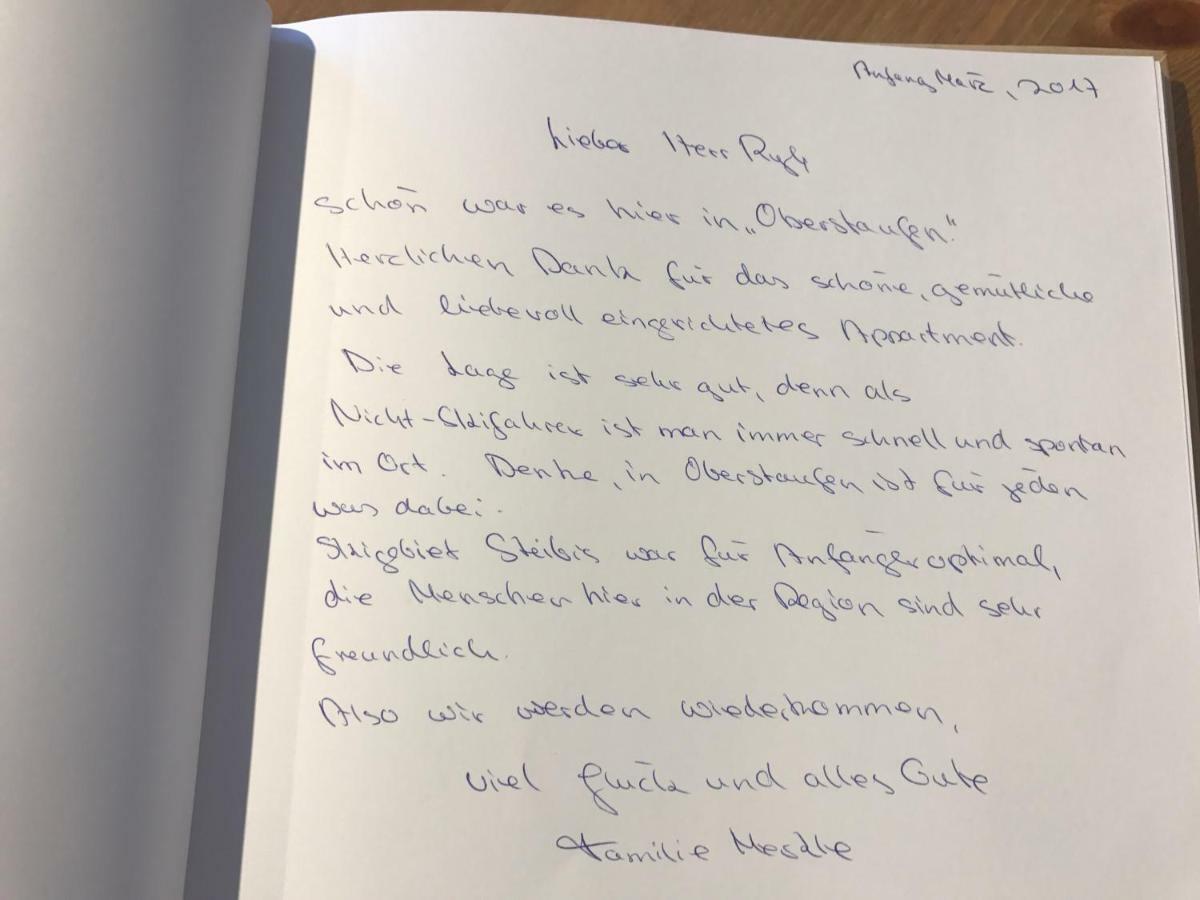 Anfang März, 2017
Lieber Herr
schön war es hier in „Oberstaufen“.
Herzlichen Dank für das schöne, gemütliche
und liebevoll eingerichtetes Appartment.
Die Lage ist sehr gut, denn als
Nicht-Skifahrer ist man immer schnell und spontan
im Ort. Denke, in Oberstaufen ist für jeden
was dabei.
Skigbiet Steibis war für Anfänger optimal,
die Menschen hier in der Region sind sehr
freundlich.
Also wir werden wiederkommen,
viel Glück und alles Gute
Familie